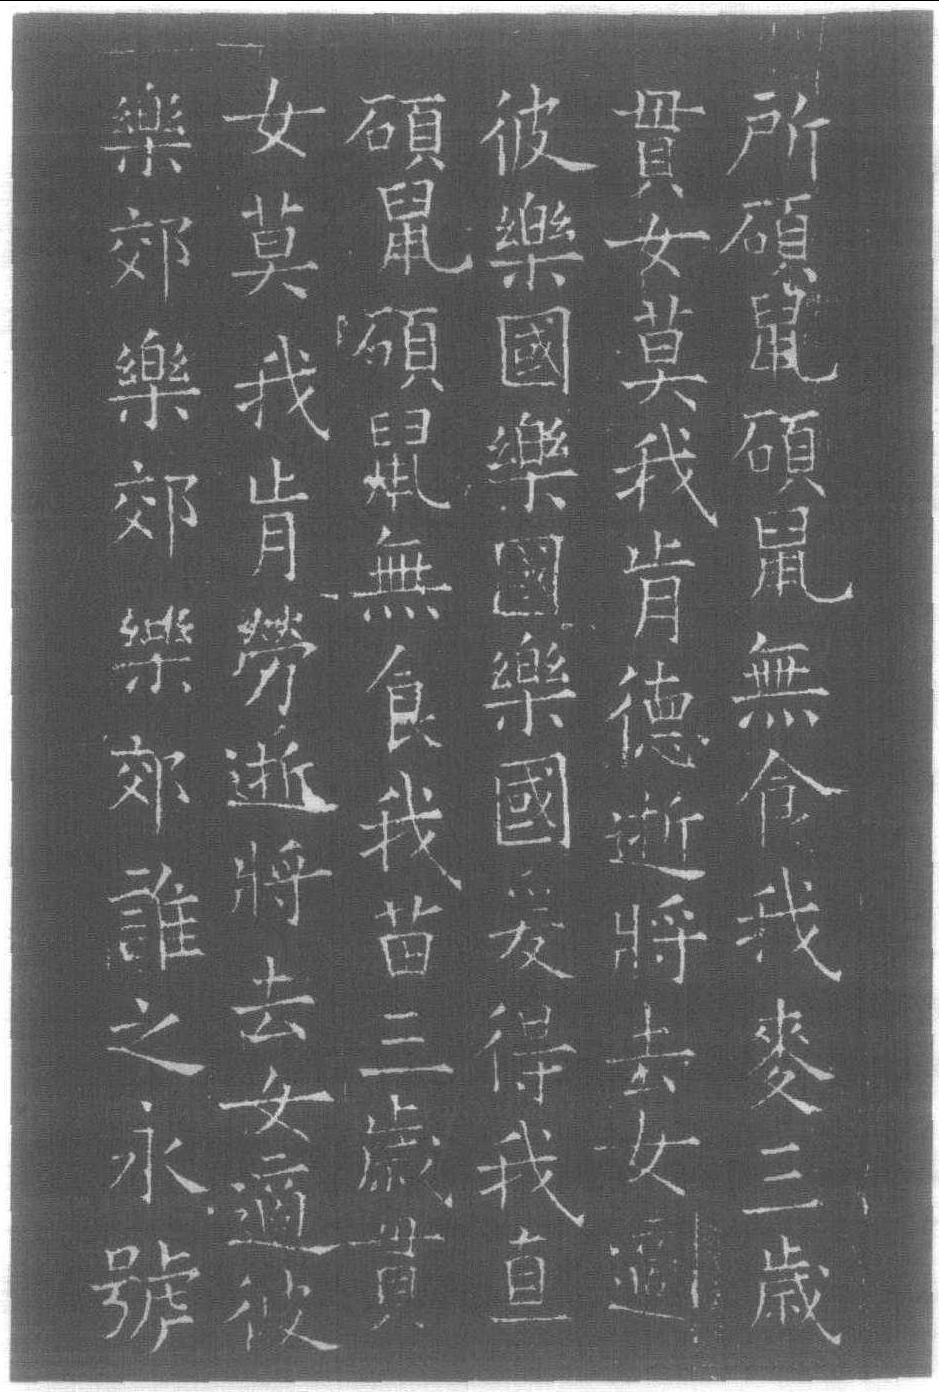 所碩鼠碩鼠無食我麥三歲
貫女莫我肯德逝將去女適
彼樂國樂國樂國爰得我直
碩鼠碩鼠無食我苗三歲貫
女莫我肯勞逝將去女適彼
樂郊樂郊樂郊誰之永號